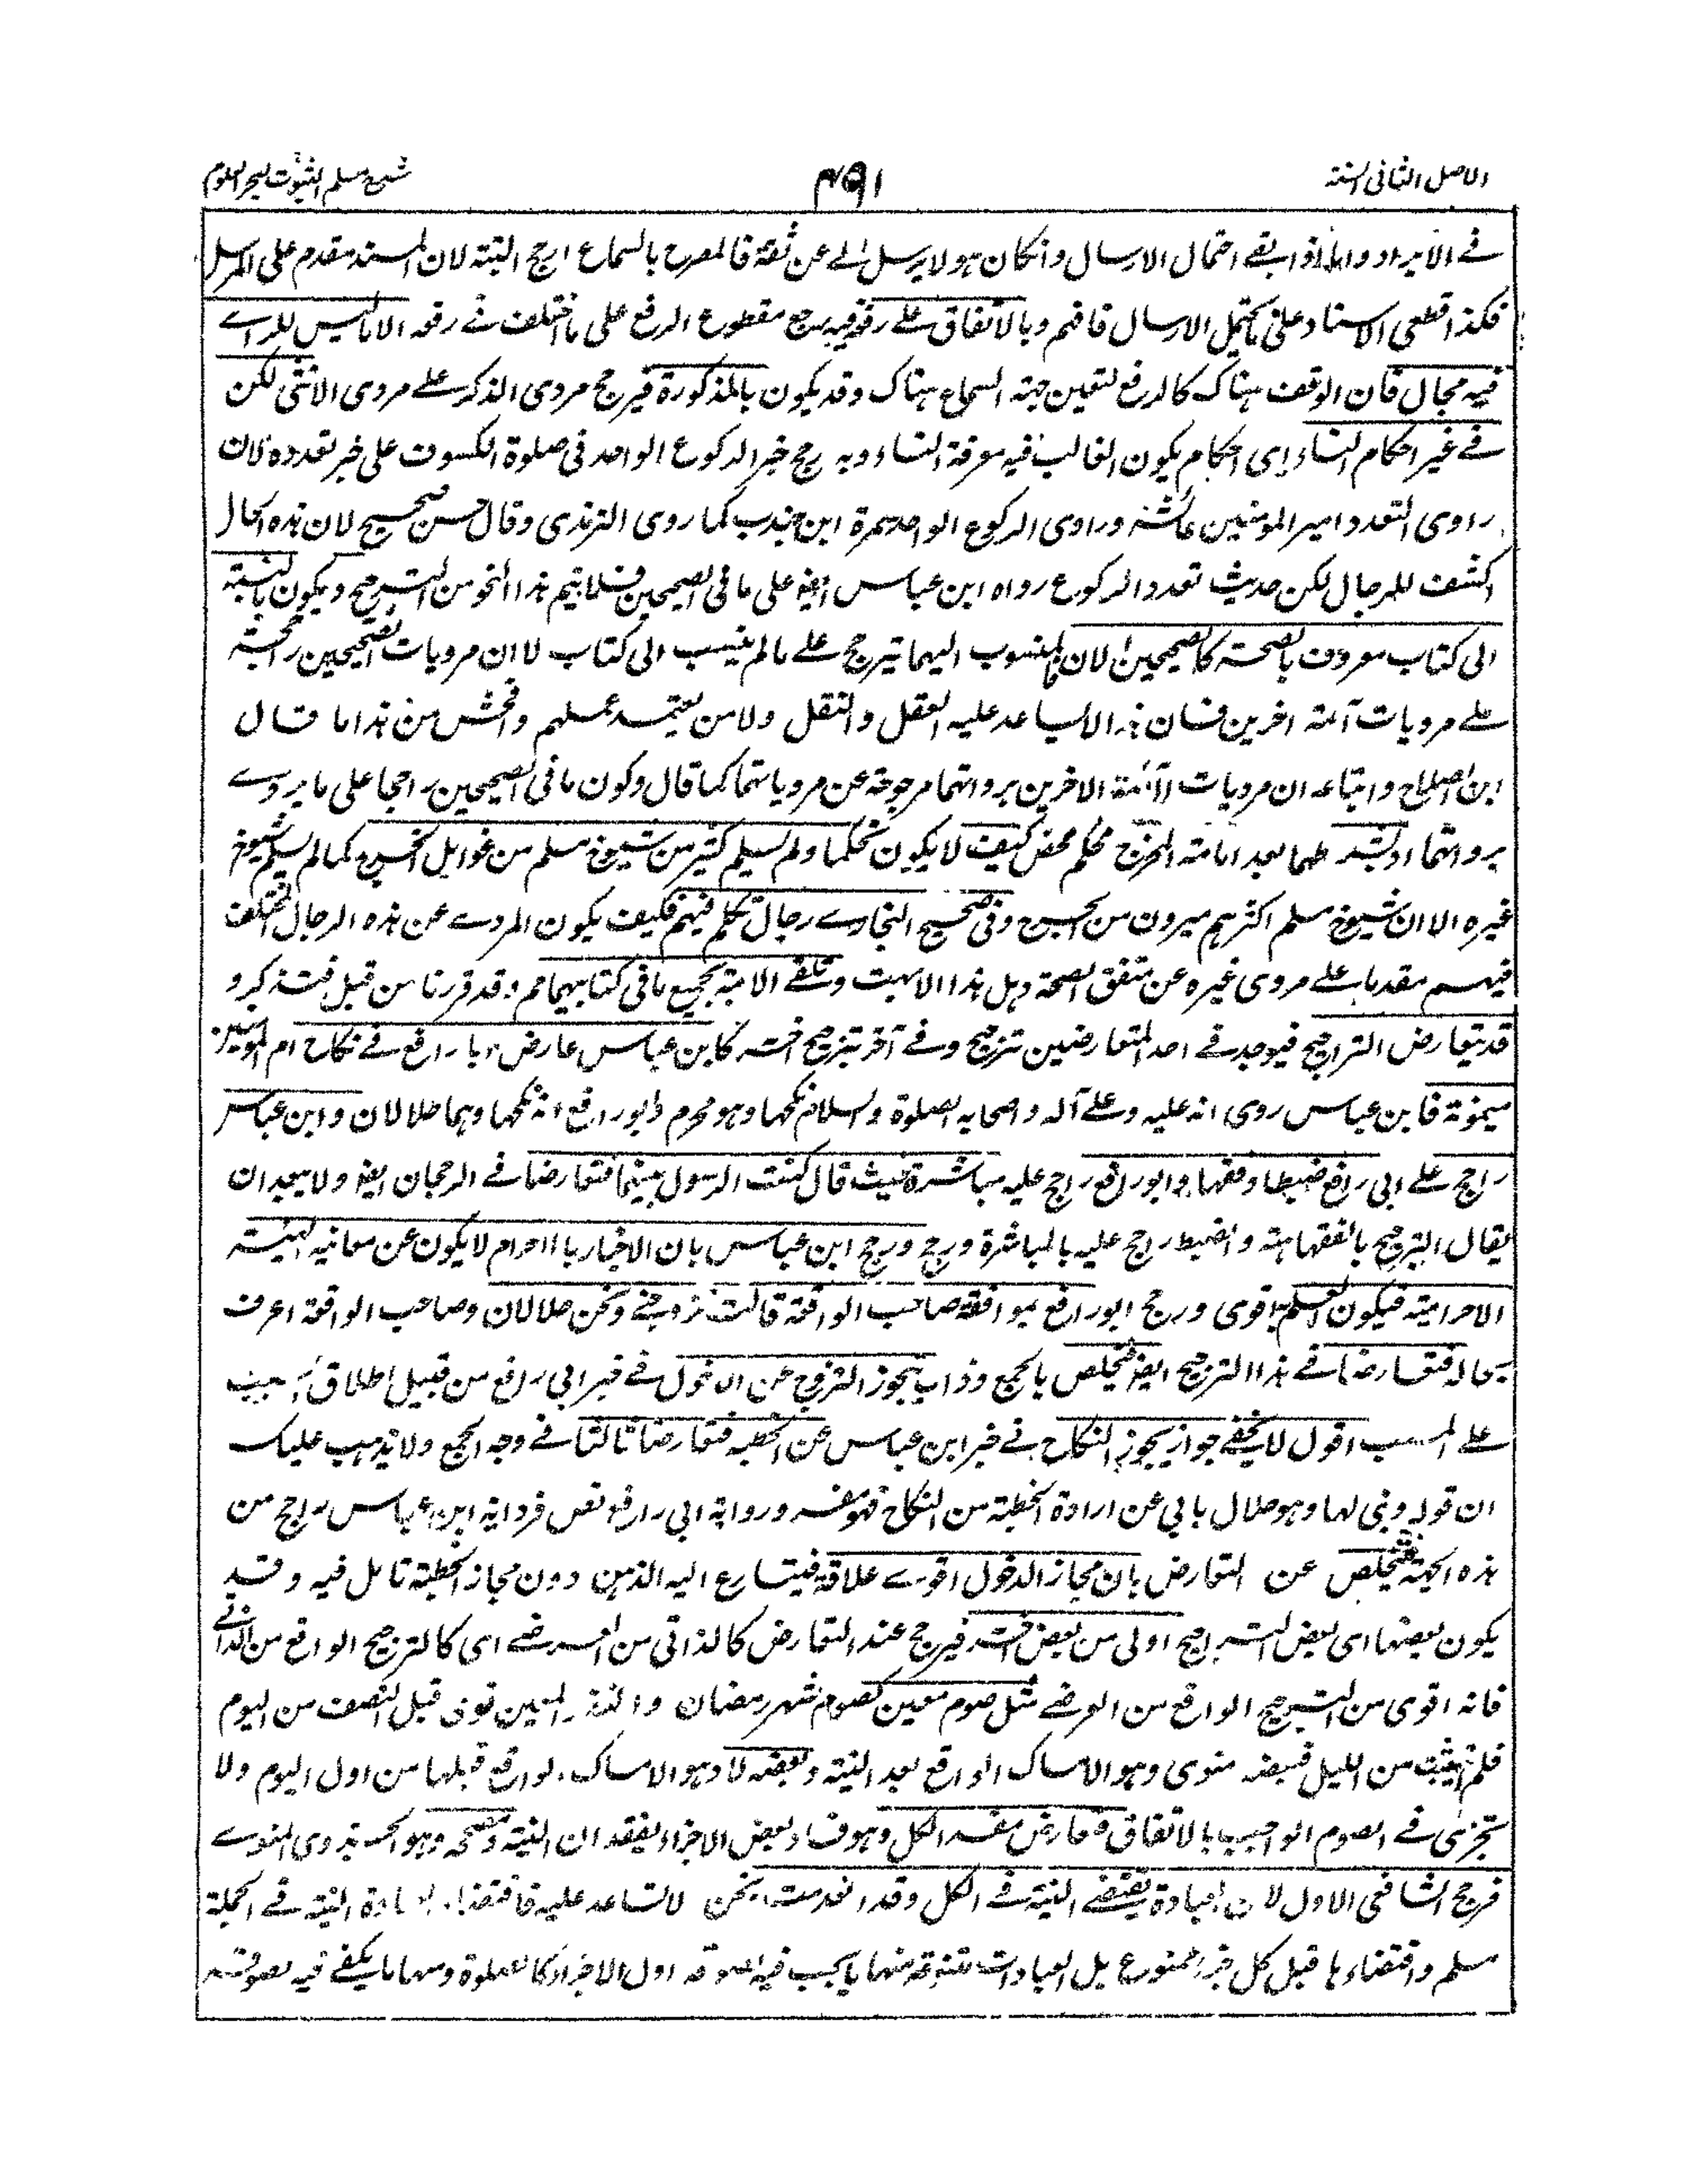 الاصل الثانى السنة ۴۹۱ شرح مسلم الثبوت لبحر العلوم
فے الايراد واذا بقے احتمال الارسال وانكان هو لا يرسل الے عن ثقة فالمصرح بالسماع ارجح البتة لان المسند مقدم على المرسل
فكذا قطعى الاسناد على محتمل الارسال فافهم وبالاتفاق علے رفعه فيرجح مقطوع الرفع على ما اختلف فے رفعه الا ما ليس للراے
فيه مجال فان الوقف هناك كالرفع لتعين جهة السماع هناك وقد يكون بالذكورة فيرجح مروى الذكر علے مروى الانثى لكن
فے غير احكام النساء اى احكام يكون الغالب فيه معرفة النساء وبه رجح خبر الركوع الواحد فى صلوة الكسوف على خبر تعدده لان
راوى التعدد امير المومنين عائشة وراوى الركوع الواحد سمرة ابن جندب كما روى الترمذى وقال حسن صحيح لان هذه الحال
اكشف للرجال لكن حديث تعدد الركوع رواه ابن عباس ايضا على ما فى الصحيحين فلا يتم هذا النحو من الترجيح ويكون بالنسبة
الى كتاب معروف بالصحة كالصحيحين الان المنسوب اليهما يترجح علے ما لم ينسب الى كتاب لا ان مرويات الصحيحين راجحة
علے مرويات آئمة اخرين فان هذا لا يساعد عليه العقل والنقل ولا من يعتمد عملهم وافحش من هذا ما قال
ابن الصلاح واتباعه ان مرويات الآئمة الاخرين بروايتهما مرجوحة عن مروياتهما كما قال وكون ما فى الصحيحين راجحا على ما يروے
بروايتهما او بشرطهما بعد امامة المخرج تحكم محض كيف لا يكون تحكما ولم يسلم كثير من شيوخ مسلم من غوايل الجرح كما لم يسلم شيوخ
غيره الا ان شيوخ مسلم اكثرهم مبرون من الجرح وفى صحيح البخارے رجال تكلم فيهم فكيف يكون المروے عن هذه الرجال المختلف
فيهم مقدما علے مروى غيره عن متفق الصحة وهل هذا الا بهت وتلقے الامة بجميع ما فى كتابيهما مم وقد قررنا من قبل فتذكر و
قد يتعارض التراجيح فيوجد فے احد المتعارضين ترجيح وفے آخر ترجيح اخر كابن عباس عارض ابا رافع فے نكاح ام المومنين
ميمونة فابن عباس روى انه عليه وعلے آله واصحابه الصلوة والسلام نكحها وهو محرم وابو رافع انه نكحها وهما حلالان وابن عباس
راجح علے ابى رافع ضبطا وفقها وابو رافع راجح عليه مباشرة حيث قال كنت الرسول بينهما فتعارضا فے الرجحان ايضا ولا يبعد ان
يقال الترجيح بالفقاهة والضبط راجح عليه بالمباشرة ورجح ابن عباس بان الاخبار بالاحرام لا يكون عن معاينة الهيئة
الاحرامية فيكون العلم به اقوى ورجح ابو رافع بموافقة صاحب الواقعة قالت تزوجنى ونحن حلالان وصاحب الواقعة اعرف
بحاله فتعارضا فے هذا الترجيح ايضا فتخلص بالجمع وذا بتجوز التزوج عن الدخول فے خبر ابى رافع من قبيل اطلاق السبب
علے المسبب اقول لا يخفے جواز تجوز النكاح فے خبر ابن عباس عن الخطبة فتعارضا ثالثا فے وجه الجمع ولا يذهب عليك
ان قوله وبنى لها وهو حلال يابى عن ارادة الخطبة من النكاح فهو مفسر ورواية ابى رافع نص فرواية ابن عباس راجح من
هذه الجهة فتخلص عن التعارض بان مجاز الدخول اقوے علاقة فيتسارع اليه الذهن دون مجاز الخطبة تامل فيه وقد
يكون بعضها اى بعض التراجيح اولى من بعض اخر فيرجح عند التعارض كالذاتى من العرضے اى كالترجيح الواقع من الذاتے
فانه اقوى من الترجيح الواقع من العرضے مثل صوم معين كصوم شهر رمضان والنذر المعين نوى قبل النصف من اليوم
فلم يبيت من الليل فبعضه منوى وهو الامساك الواقع بعد النية وبعضه لا وهو الامساك الواقع قبلها من اول اليوم ولا
تجزى فے الصوم الواجب بالاتفاق فتعارض مفسد الكل وهو فساد بعض الاجزاء لفقدان النية ومصححه وهو الجزء المنوے
فرجح الشافعى الاول لان العبادة يقتضے النية فے الكل وقد انعدمت ونحن لا نساعد عليه فاقتضاء العبادة النية فے الجملة
مسلم واقتضاءها قبل كل جزء ممنوع بل العبادات متنوعة منها ما يجب فيه اول الاجزاء كالصلوة ومنها ما يكفے فيه